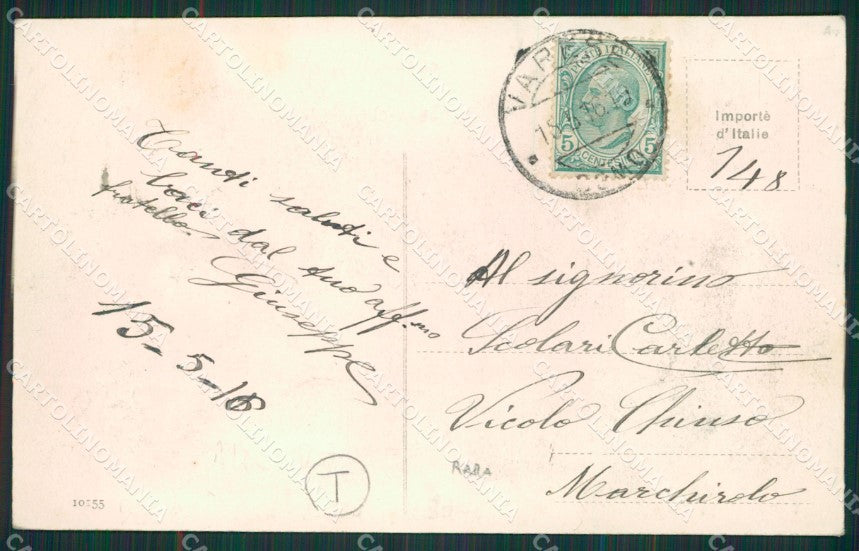 Tanti saluti e
baci dal tuo aff.mo
fratello
Giuseppe
15-5-16
Importè
d'Italie
148
VARESE
COMO
POSTE ITALIANE
5 5
CENTESIMI
Al signorino
Scolari Carletto
Vicolo Chiuso
Marchirolo
RARA
T
10:55
CARTOLINOMANIA